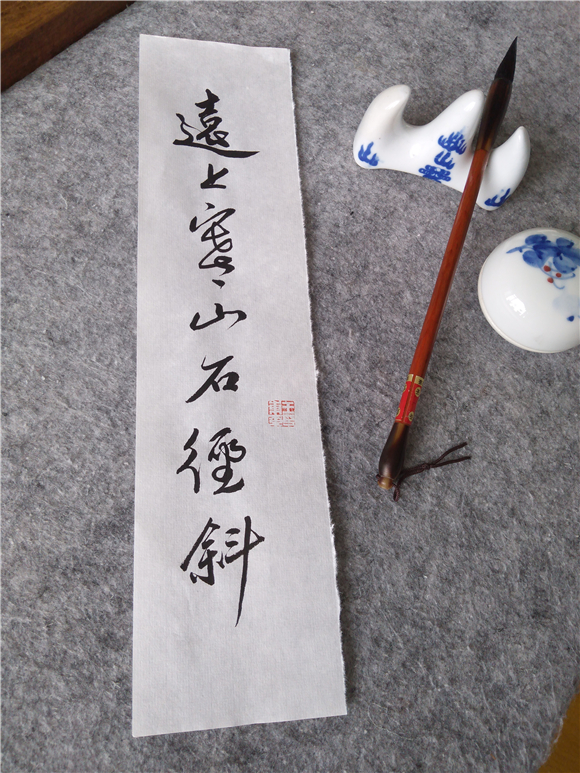 遠上寒山石徑斜